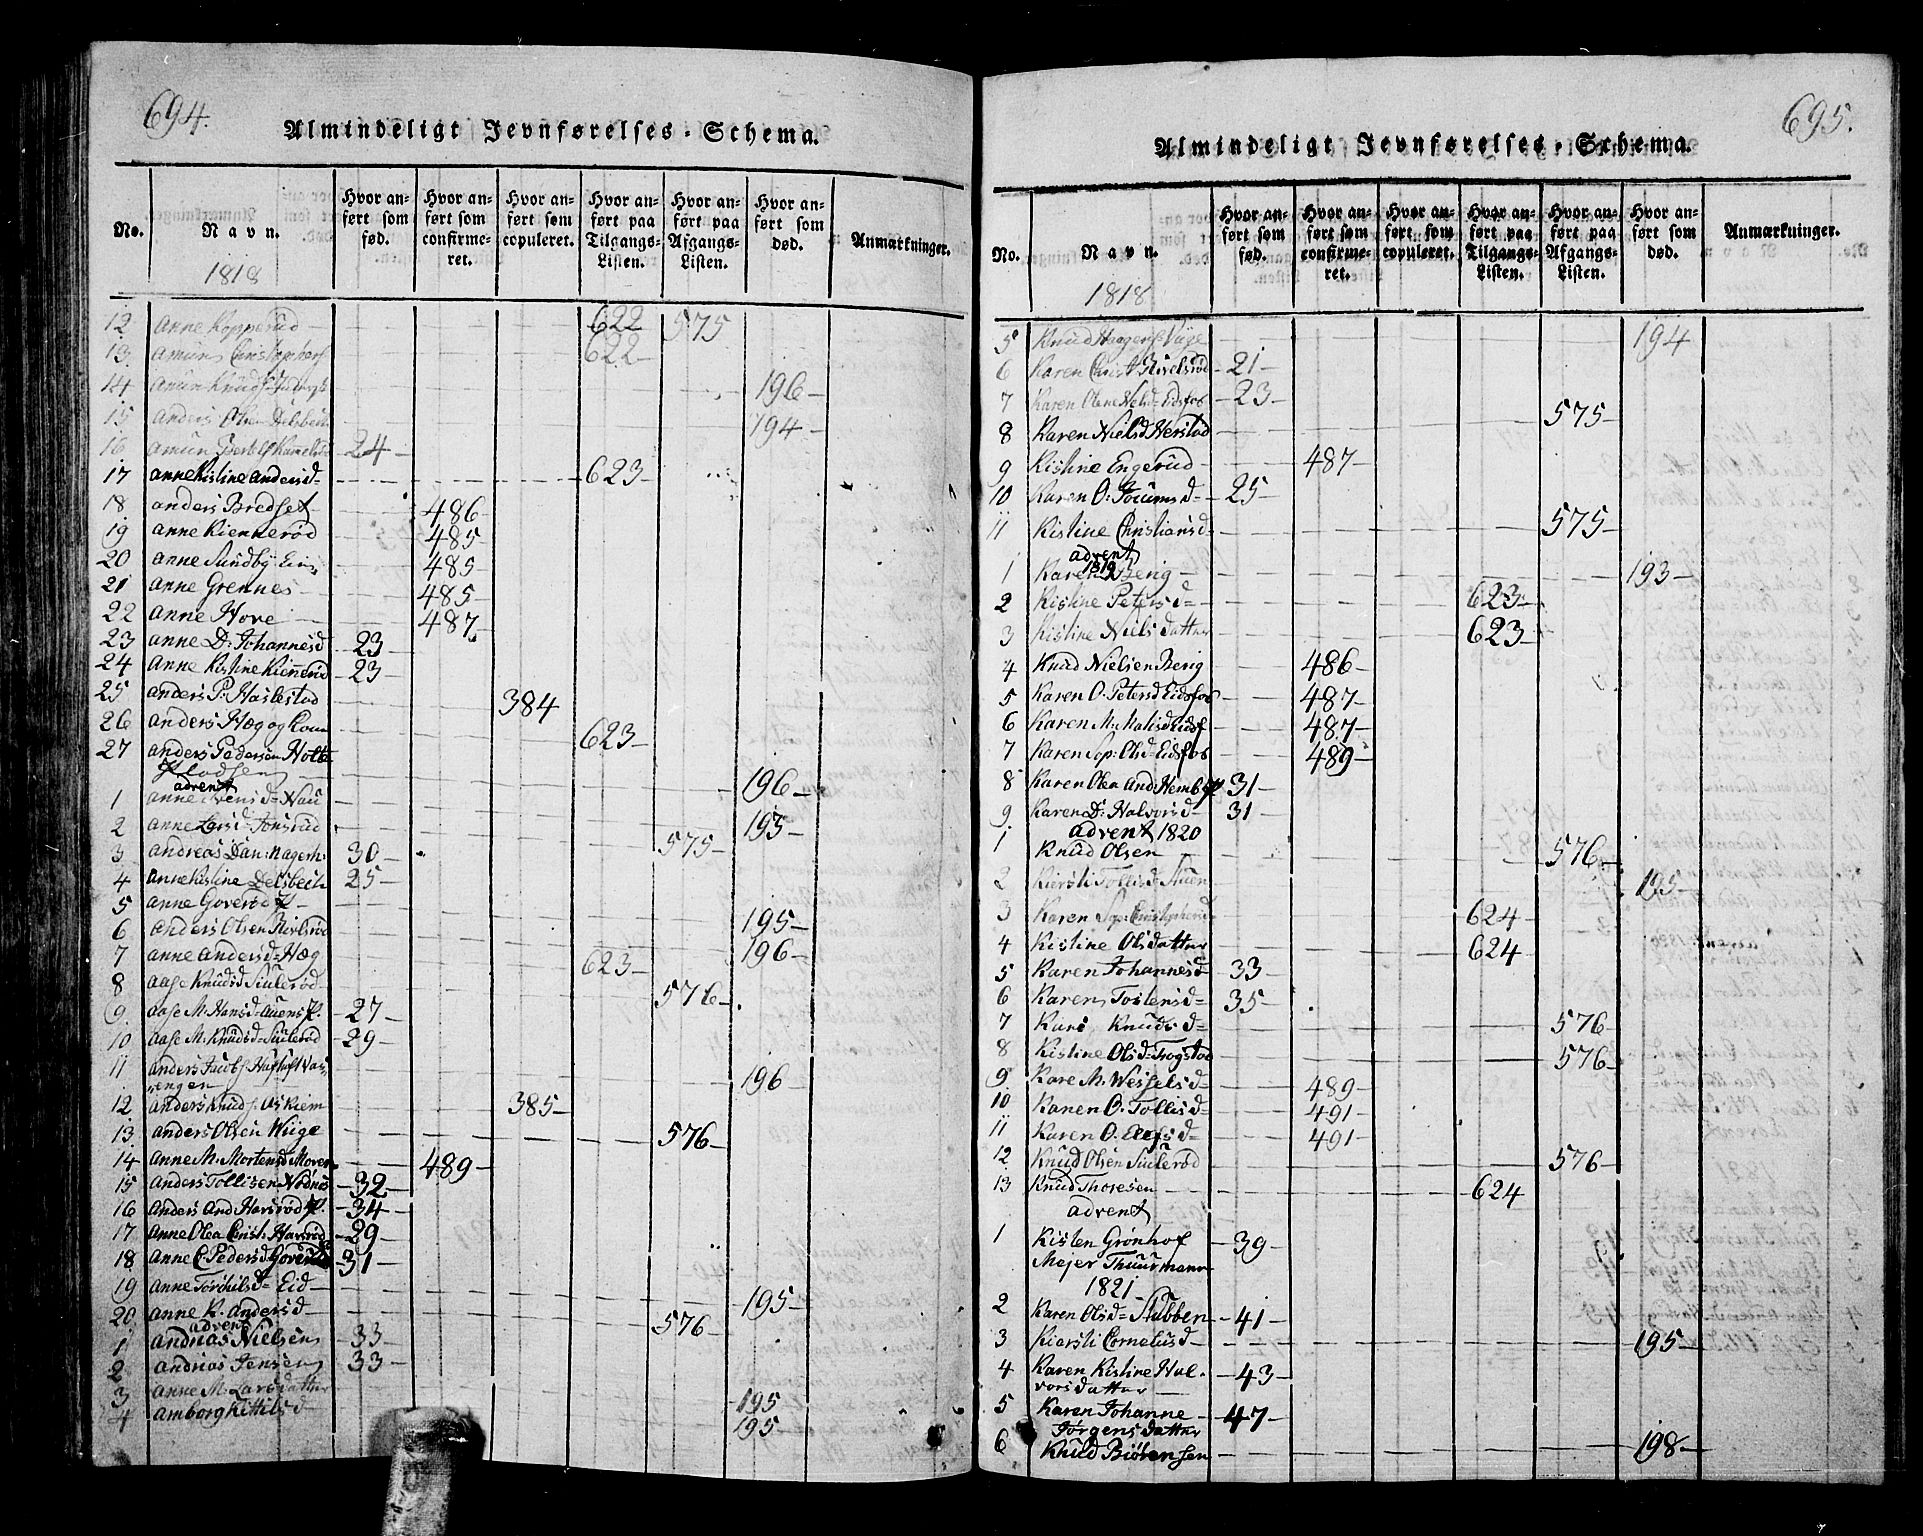 694.
Almindeligt Jevnførelses-Schema.
No.
Navn.
1818
Hvor anført som fød.
Hvor anført som confirmeret.
Hvor anført som copuleret.
Hvor anført paa Tilgangs-Listen.
Hvor anført paa Afgangs-Listen.
Hvor anført som død.
Anmærkninger.
12 Anne Kopperud 622 575
13 Amun Christophers 622
14 Amun Knuds 196
15 Anders Olsen 194
16 Amun 24
17 Anne Kistine Andersd 623
18 Anders Bredset 486
19 Anne Kiennerød 485
20 Anne Sundby 485
21 Anne Grennes 485
22 Anne Hove 487
23 Anne D: Johannesd 23
24 Anne Kistine Kiennerød 23
25 Anders P: Haslestad 384
26 Anders Hæg og Kone 623
27 Anders Pedersen Holte
196
advent
1 Anne Iversd= Hau
2 Anne Larsd= Jonsrud 193
3 Andreas Dan: Hagerh: 30 575
4 Anne Kistine Delsbech 25
5 Anne Goverød
6 Anders Olsen 195
7 Anne Andersd= Hæg 196
8 Aase Knudsd Sulerød 623
9 Aase M. Hansd= Auens 27 576
10 Aase M. Knudsd= Sulerød 29
11 Anders
engen 196
12 Anders Knuds Askiem 385
13 Anders Olsen Wiige 576
14 Anne M. Mortensd Moren 489
15 Anders Tollisen Nødnes 32
16 Anders And Harsrød 34
17 Anne Olea Crist: Harsrød 29
18 Anne C. Pedersd Goverød 31
19 Anne Torchilsd= Eid 195
20 Anne K. Andersd 576
advent
1 Andrias Nielsen 33
2 Andrias Jensen 33
3 Anne M. Larsdatter 195
4 Amborg Kittilsd 195
695.
Almindeligt Jevnførelses-Schema.
No.
Navn.
1818
Hvor anført som fød.
Hvor anført som confirmeret.
Hvor anført som copuleret.
Hvor anført paa Tilgangs-Listen.
Hvor anført paa Afgangs-Listen.
Hvor anført som død.
Anmærkninger.
5 Knud Haagens 194
6 Karen Christ 21
7 Karen Olene Eidsfos 23
8 Karen Nielsd Herstad 575
9 Kistine Engerud 487
10 Karen O: Joeumsd= 25
11 Kistine Christiansd= 575
advent
1819
1 Karen Berig 193
2 Kistine Petersd= 623
3 Kistine Nielsdatter 623
4 Knud Nielsen Berig 486
5 Karen O. Petersd Eidsfos 487
6 Karen M. 487
7 Karen Sop: Olsd= Eidsfos 489
8 Karen Olea And 31
9 Karen D: Halvorsd= 31
advent 1820
1 Knud Olsen 576
2 Kiersti Tollisd= Auen 195
3 Karen Sop: Christophersd 624
4 Kistine Olsdatter 624
5 Karen Johannesd 33
6 Karen Tostensd= 35
7 Kari Knudsd= 576
8 Kistine Olsd= Trogstad 576
9 Kare M. Wesselsd= 489
10 Karen O. Tollisd= 491
11 Karen O. Elefsd= 491
12 Knud Olsen Sulerød 576
13 Knud Thoresen 624
advent
1 Kisten Grønhof 39
Mejer Thuurmann
1821
2 Karen Olsd= Stubben 41
3 Kiersti Corneliusd 195
4 Karen Kistine Hal- 43
vorsdatter
5 Karen Johanne 47
Jørgensdatter
6 Knud Biørensen 198